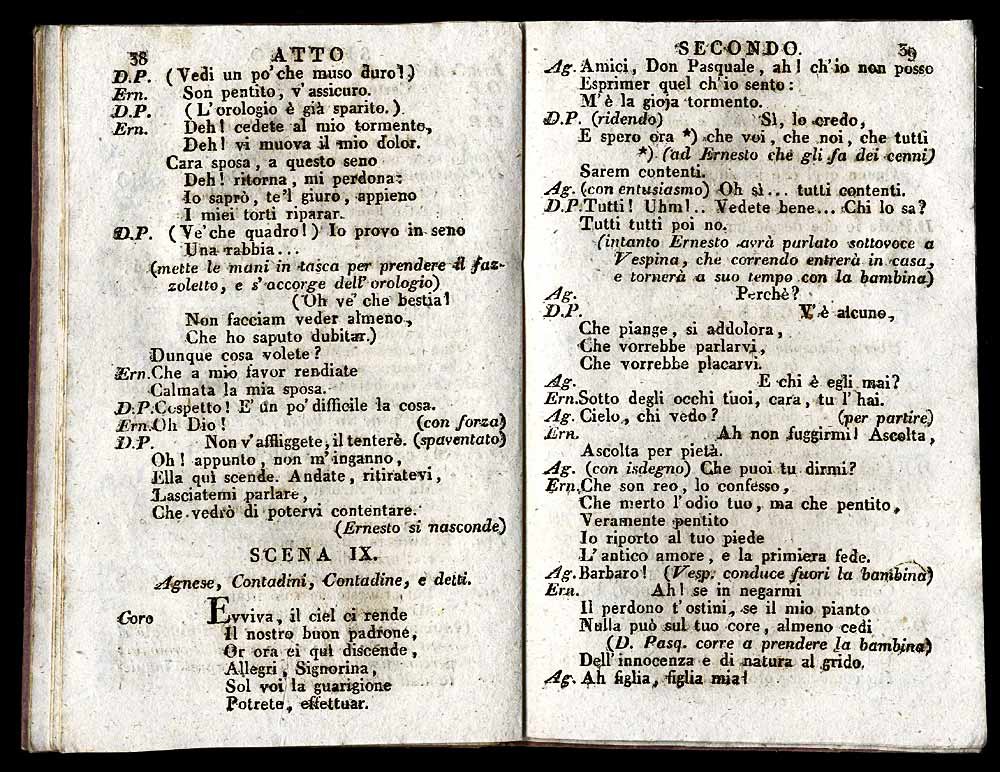 38 ATTO
D.P. (Vedi un po' che muso duro!)
Ern. Son pentito, v'assicuro.
D.P. (L'orologio è già sparito.)
Ern. Deh! cedete al mio tormento,
Deh! vi muova il mio dolor.
Cara sposa, a questo seno
Deh! ritorna, mi perdona:
Io saprò, te'l giuro, appieno
I miei torti riparar.
D.P. (Ve' che quadro!) Io provo in seno
Una rabbia...
(mette le mani in tasca per prendere il faz-
zoletto, e s'accorge dell'orologio)
(Oh ve' che bestia!
Non facciam veder almeno,
Che ho saputo dubitar.)
Dunque cosa volete?
Ern. Che a mio favor rendiate
Calmata la mia sposa.
D.P. Cospetto! E' un po' difficile la cosa.
Ern. Oh Dio! (con forza)
D.P. Non v'affliggete, il tenterò. (spaventato)
Oh! appunto, non m'inganno,
Ella quì scende. Andate, ritiratevi,
Lasciatemi parlare,
Che vedrò di potervi contentare.
(Ernesto si nasconde)
SCENA IX.
Agnese, Contadini, Contadine, e detti.
Coro Evviva, il ciel ci rende
Il nostro buon padrone,
Or ora ei quì discende,
Allegri, Signorina,
Sol voi la guarigione
Potrete, effettuar.
SECONDO. 39
Ag. Amici, Don Pasquale, ah! ch'io non posso
Esprimer quel ch'io sento:
M'è la gioja tormento.
D.P. (ridendo) Sì, lo credo,
E spero ora *) che voi, che noi, che tutti
*) (ad Ernesto che gli fa dei cenni)
Sarem contenti.
Ag. (con entusiasmo) Oh sì... tutti contenti.
D.P. Tutti! Uhm!.. Vedete bene... Chi lo sa?
Tutti tutti poi no.
(intanto Ernesto avrà parlato sottovoce a
Vespina, che correndo entrerà in casa,
e tornerà a suo tempo con la bambina)
Ag. Perchè?
D.P. V'è alcuno,
Che piange, si addolora,
Che vorrebbe parlarvi,
Che vorrebbe placarvi.
Ag. E chi è egli mai?
Ern. Sotto degli occhi tuoi, cara, tu l'hai.
Ag. Cielo, chi vedo? (per partire)
Ern. Ah non fuggirmi! Ascolta,
Ascolta per pietà.
Ag. (con isdegno) Che puoi tu dirmi?
Ern. Che son reo, lo confesso,
Che merto l'odio tuo, ma che pentito,
Veramente pentito
Io riporto al tuo piede
L'antico amore, e la primiera fede.
Ag. Barbaro! (Vesp. conduce fuori la bambina)
Ern. Ah! se in negarmi
Il perdono t'ostini, se il mio pianto
Nulla può sul tuo core, almeno cedi
(D. Pasq. corre a prendere la bambina)
Dell'innocenza e di natura al grido.
Ag. Ah figlia, figlia mia!